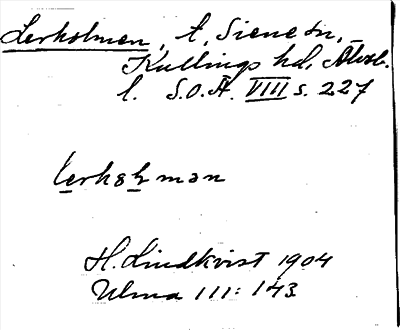 Lerholmen, t, Siene sn,
Kullings hd, Älvsb.
l. S.O.Ä. VIII s. 227
lerhȯlmən
H. Lindkvist 1904
Ulma 111: 143